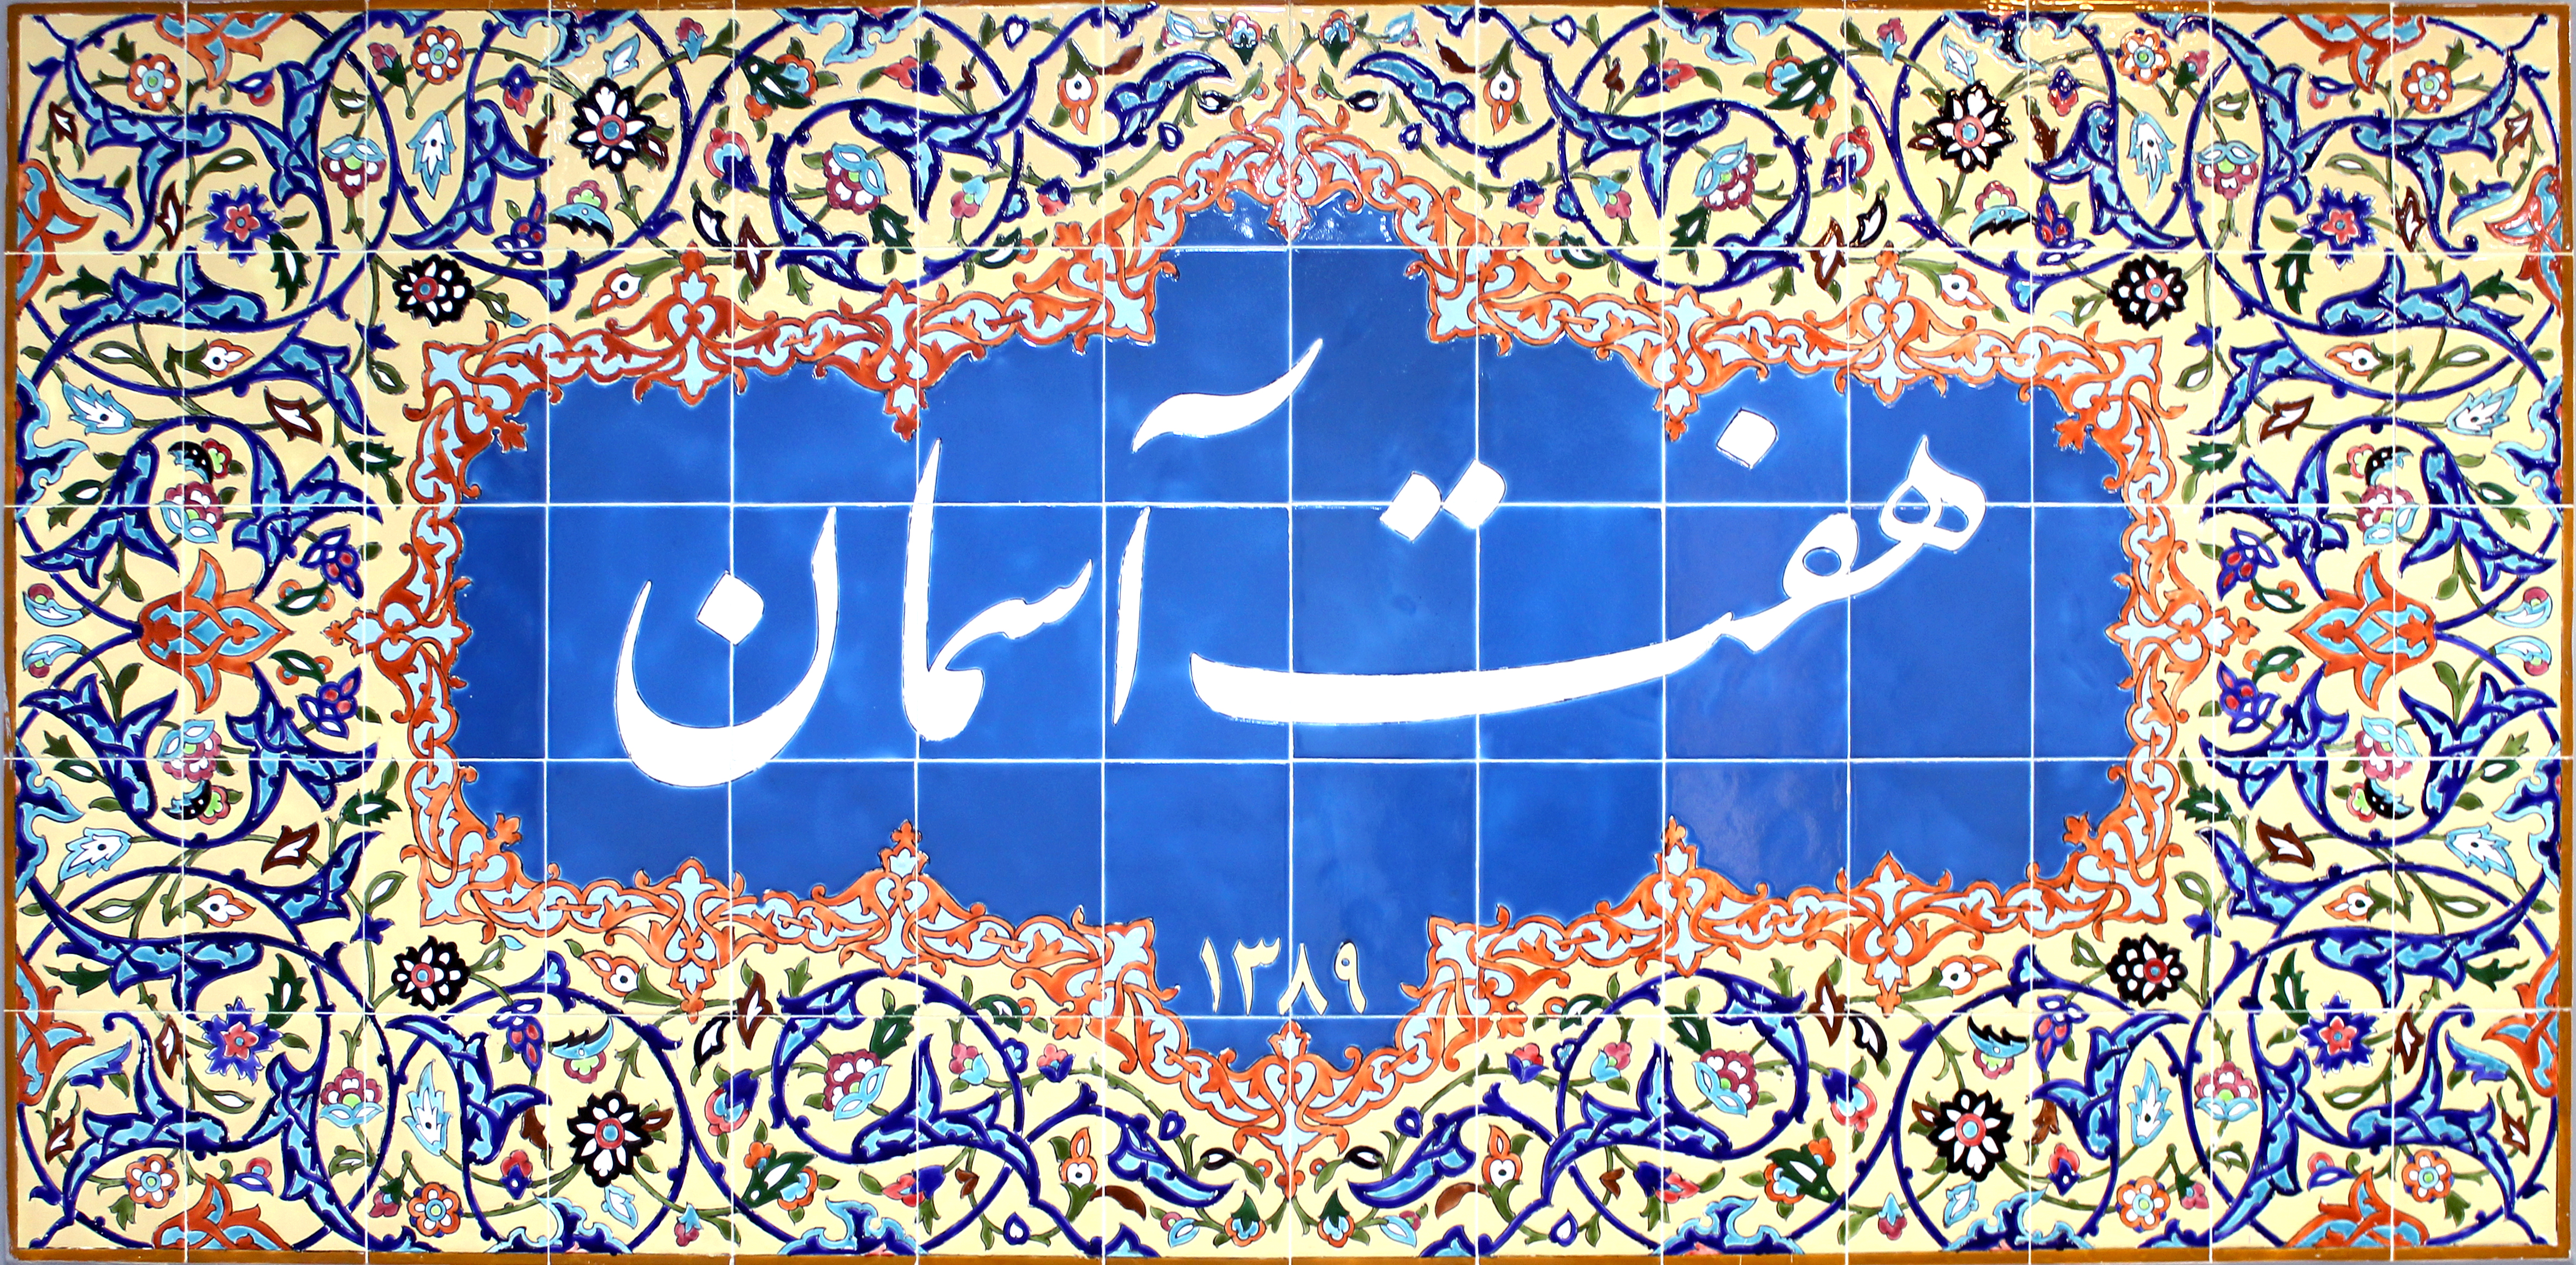 هفت آسمان
۱۳۸۹